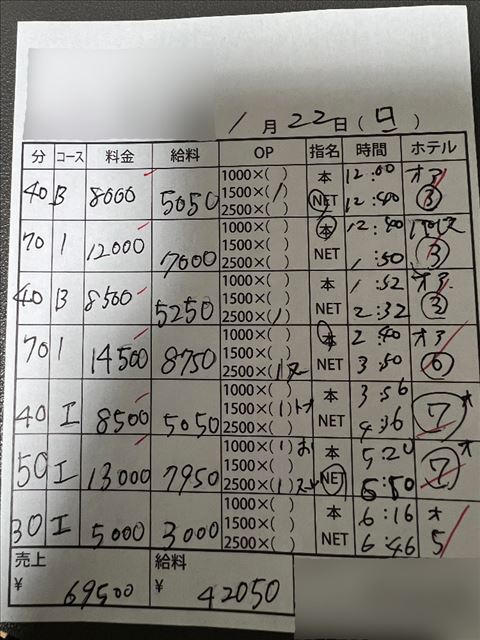 1月22日(日)
分 コース 料金 給料 OP 指名 時間 ホテル
40 B 8000 5050 1000×( ) 1500×(1) 2500×( ) 本 NET 12:00 12:40 オア ③
70 I 12000 7000 1000×( ) 1500×( ) 2500×( ) 本 NET 12:40 1:50 ③
40 B 8500 5250 1000×( ) 1500×( ) 2500×(1) 本 NET 1:52 2:32 オア ③
70 I 14500 8750 1000×( ) 1500×( ) 2500×(1) 本 NET 2:40 3:50 オア ⑥
40 エ 8500 5050 1000×( ) 1500×(1) 2500×( ) 本 NET 3:56 4:36 ⑦ オ
50 エ 13000 7950 1000×(1) お 1500×( ) 2500×(1) 本 NET 5:20 6:50 ⑦ オ
30 エ 5000 3000 1000×( ) 1500×( ) 2500×( ) 本 NET 6:16 6:46 オ 5
売上 給料
¥ 69500 ¥ 42050